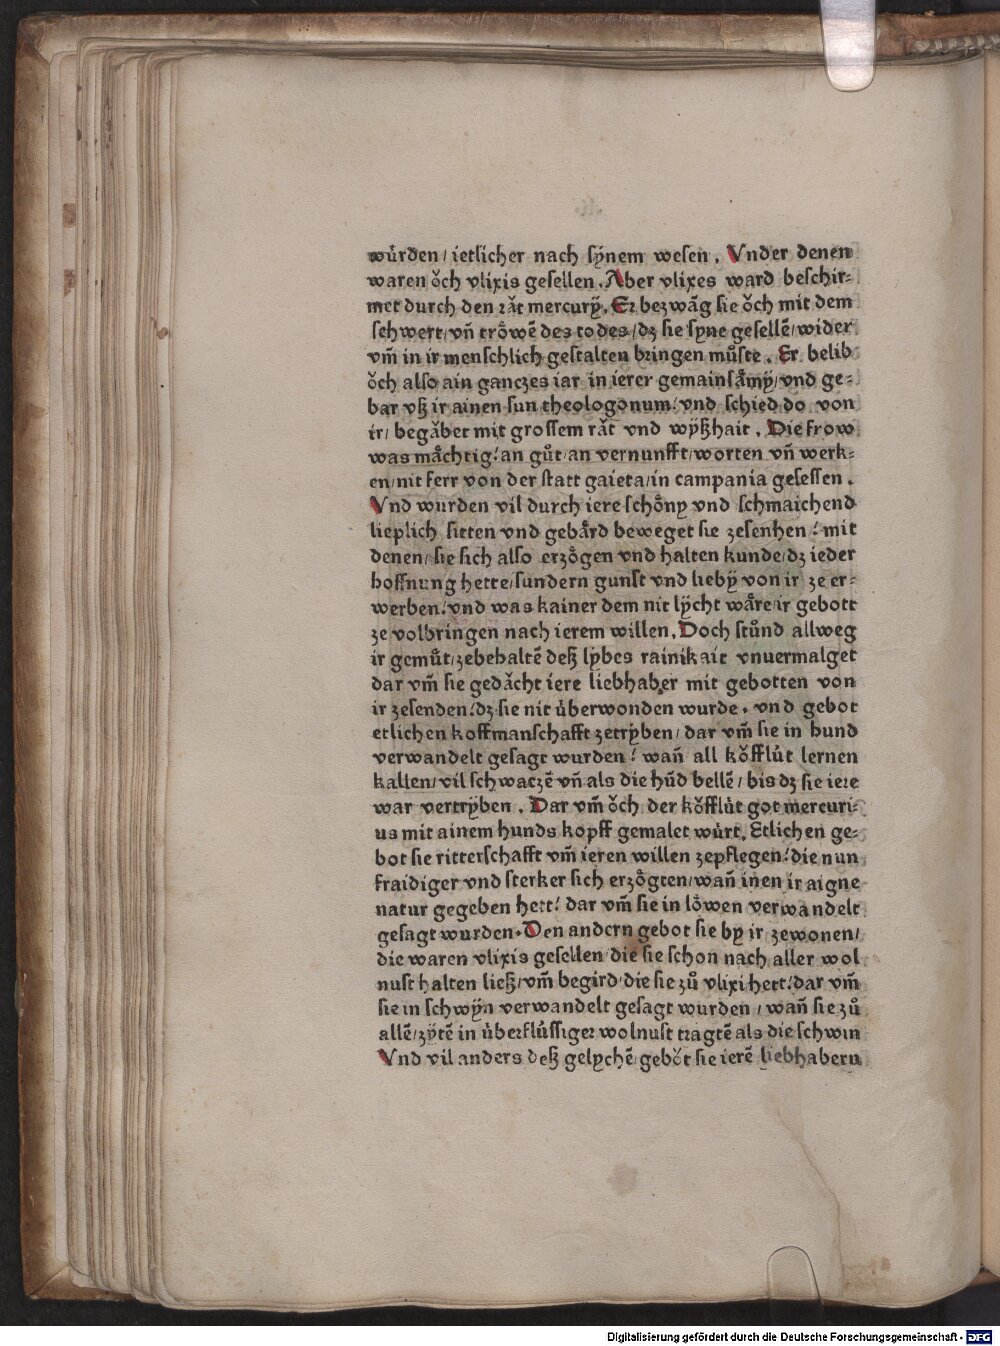 wúrden / ietlicher nach sÿnem wesen . Vnder denen
waren ŏch vlixis gesellen . Aber vlixes ward beschir⸗
met durch den raͤt mercurÿ . Er bezwāg sie ŏch mit dem
schwert / vn̄ troͤwē des todes / dz sie syne gesellē / wider
vm̄ in ir menschlich gestalten bringen muͦste . Er belib
ŏch also ain ganczes iar in ierer gemainsaͤmÿ / vnd ge⸗
bar vß ir ainen sun theologonum / vnd schied do von
ir / begǎbet mit grossem rǎt vnd wÿßhait . Die frow
was maͤchtig / an guͦt / an vernunfft / worten vn̄ werk⸗
en / nit ferr von der statt gaieta / in campania gesessen .
Vnd wurden vil durch iere schoͤny vnd schmaichend
lieplich sitten vnd gebaͤrd beweget sie zesenhen / mit
denen / sie sich also erzoͤgen vnd halten kunde / dz ieder
hoffnung hette / sundern gunst vnd liebÿ von ir ze er⸗
werben / vnd was kainer dem nit lÿcht waͤre / ir gebott
ze volbringen nach ierem willen . Doch stuͦnd allweg
ir gemuͤt / zebehaltē deß lybes rainikait vnuermalget
dar vm̄ sie gedǎcht iere liebhaber mit gebotten von
ir zesenden / dz sie nit úberwonden wurde . vnd gebot
etlichen koffmanschafft zetryben / dar vm̄ sie in hund
verwandelt gesagt wurden / wan̄ all kǒfflút lernen
kallen / vil schwaczē vn̄ als die hūd bellē / bis dz sie iere
war vertrÿben . Dar vm̄ ŏch der kǒfflút got mercuri⸗
us mit ainem hunds kopff gemalet wúrt . Etlichen ge⸗
bot sie ritterschafft vm̄ ieren willen zepflegen / die nun
fraidiger vnd sterker sich erzoͤgten / wan̄ inen ir aigne
natur gegeben hett / dar vm̄ sie in loͤwen verwandelt
gesagt wurden . Den andern gebot sie by ir zewonen /
die waren vlixis gesellen / die sie schon nach aller wol
nust halten ließ / vm̄ begird / die sie zuͦ vlixi hett / dar vm̄
sie in schwÿn verwandelt gesagt wurden / wan̄ sie zuͦ
allē / zÿtē in úberflússiger wolnust tragtē als die schwin
Vnd vil anders deß gelychē / gebǒt sie ierē liebhabern
Digitalisierung gefördert durch die Deutsche Forschungsgemeinschaft - DFG